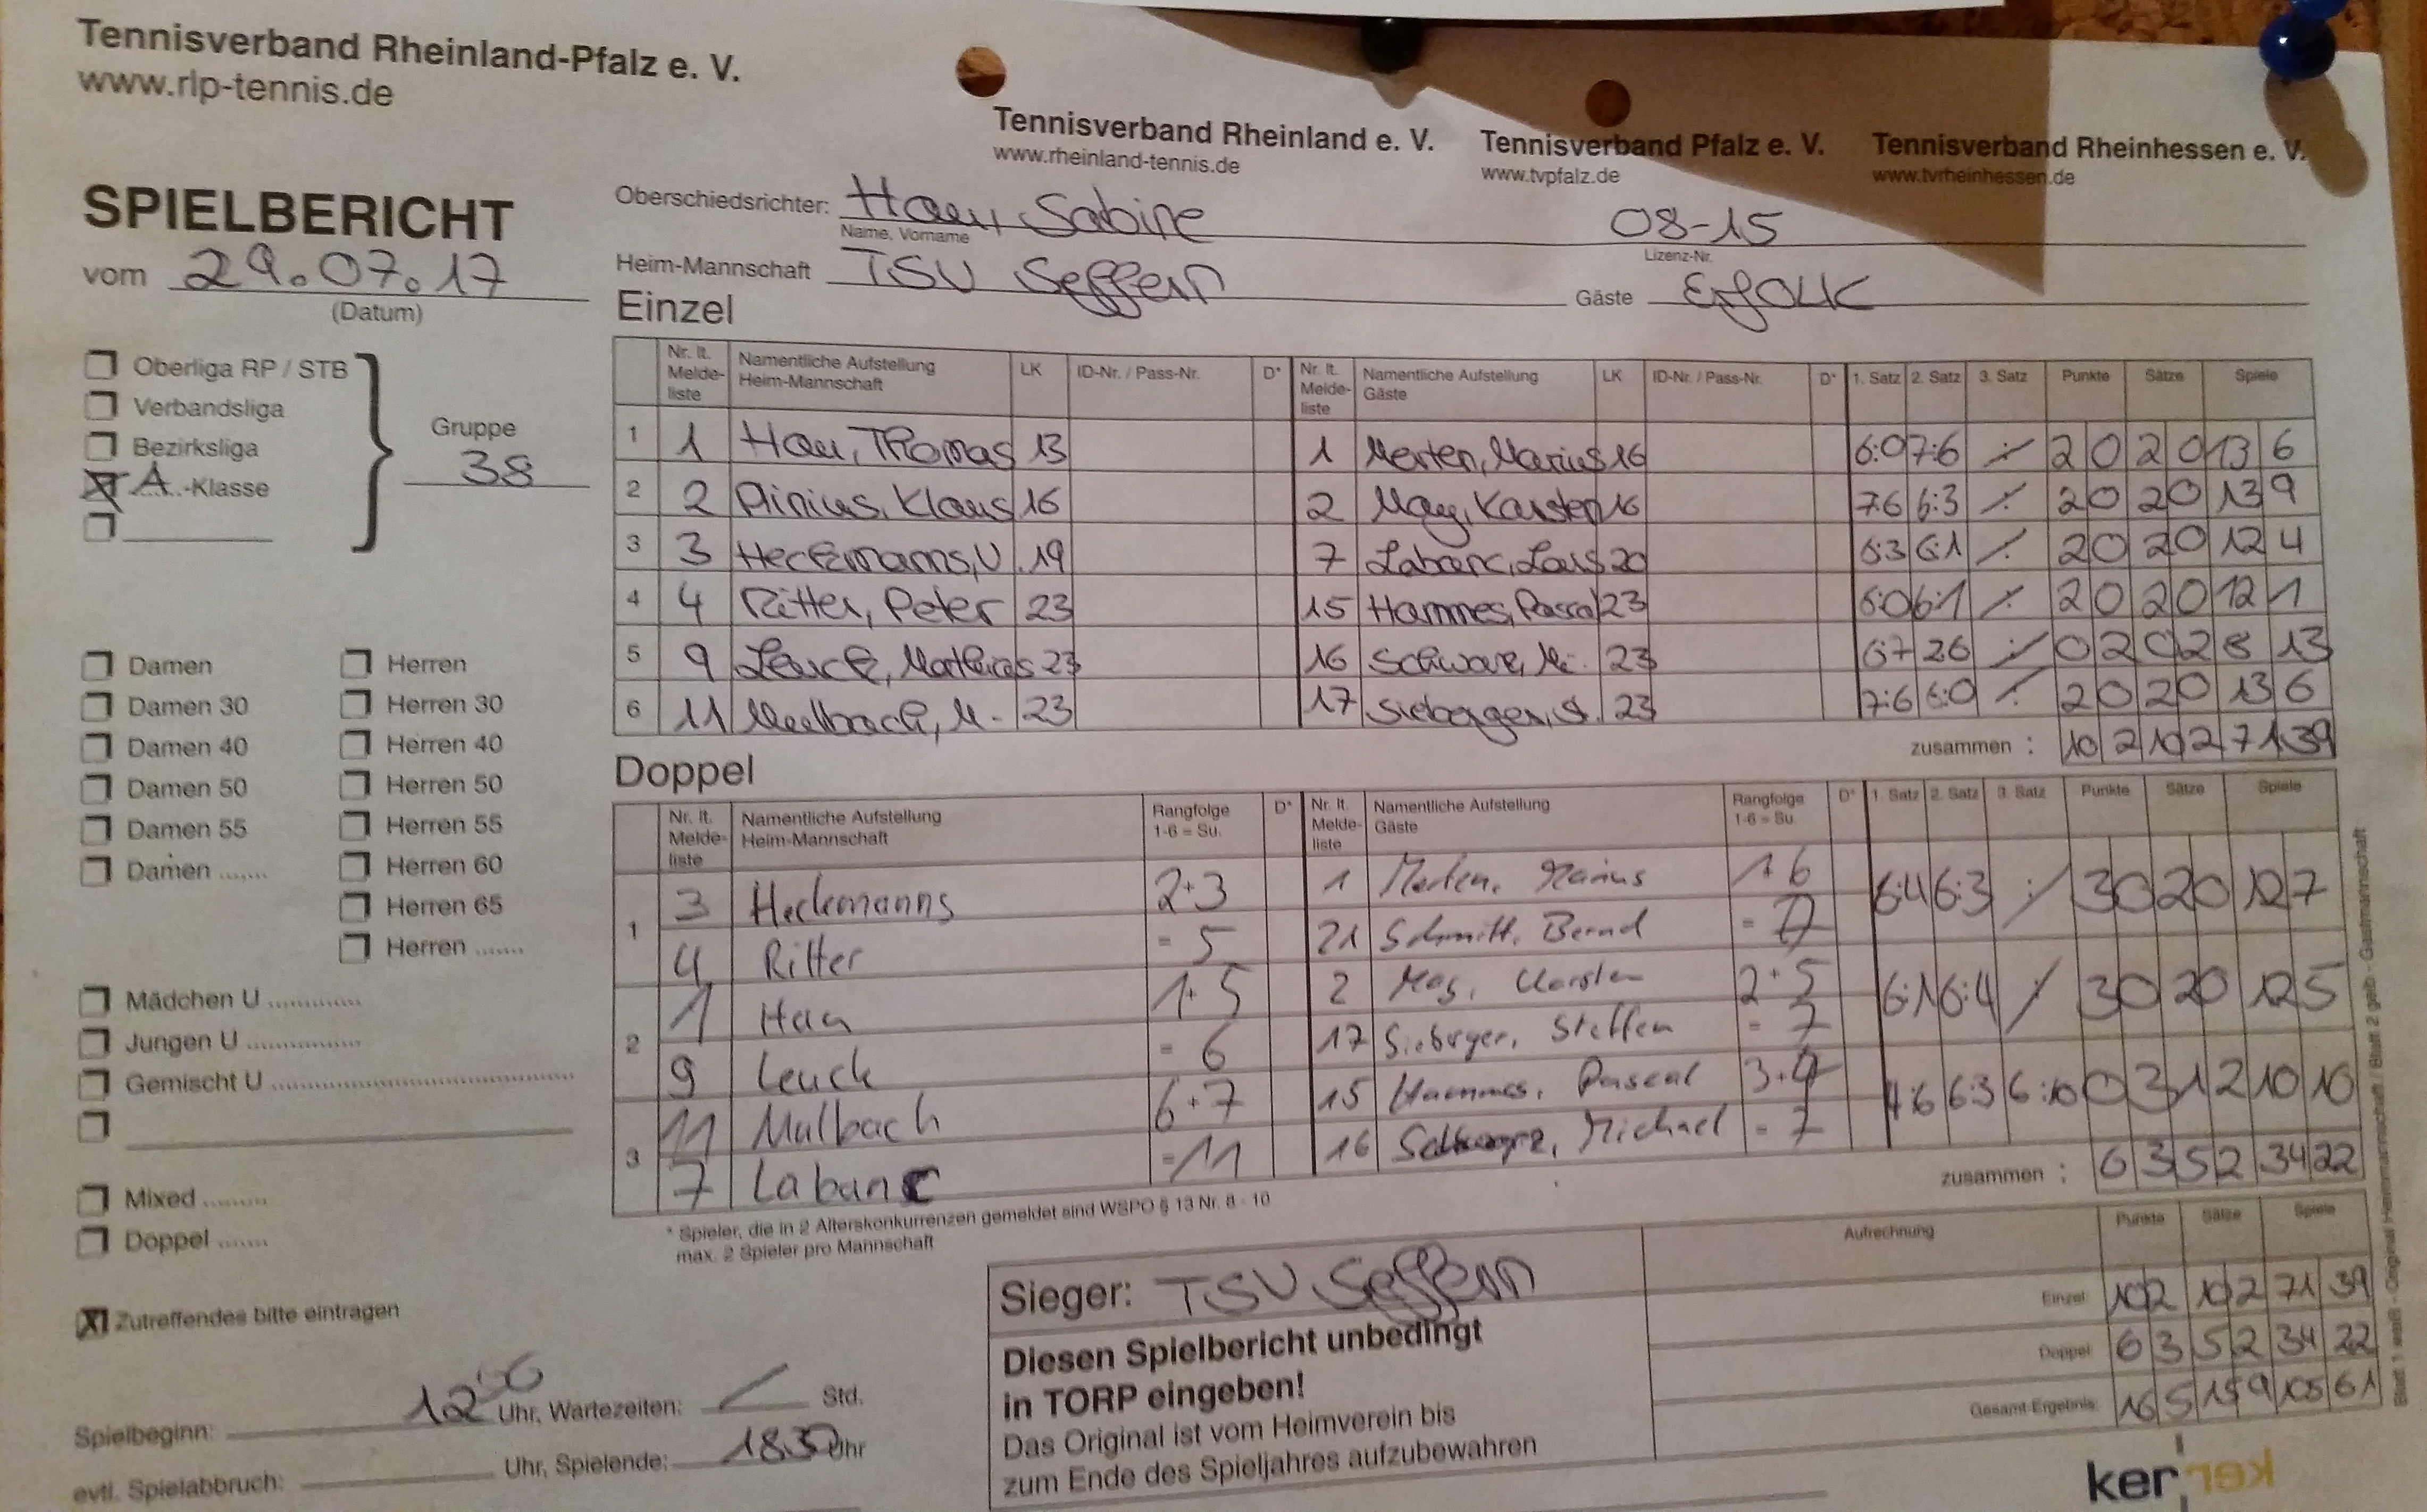 Tennisverband Rheinland-Pfalz e. V.
www.rlp-tennis.de
Tennisverband Rheinland e. V. Tennisverband Pfalz e. V. Tennisverband Rheinhessen e. V.
www.rheinland-tennis.de www.tvpfalz.de www.tvrheinhessen.de
SPIELBERICHT
vom 29.07.17
(Datum)
Oberschiedsrichter: Hau, Sabine 08-15
Name, Vorname Lizenz-Nr.
Heim-Mannschaft TSV Seffern Gäste
Oberliga RP / STB
Verbandsliga
Bezirksliga
A.-Klasse
Gruppe
38
Einzel
Nr. lt. Melde-liste Namentliche Aufstellung Heim-Mannschaft LK ID-Nr. / Pass-Nr. D* Nr. lt. Melde-liste Namentliche Aufstellung Gäste LK ID-Nr. / Pass-Nr. D* 1. Satz 2. Satz 3. Satz Punkte Sätze Spiele
1 1 Hau, Thomas 13 1 Merten, Marius 16 6:0 7:6 2 0 2 0 13 6
2 2 Klaus 16 2 May, Karsten 16 7:6 6:3 2 0 2 0 13 9
3 3 Heckemanns, U. 19 7 Labanc, 20 6:3 6:1 2 0 2 0 12 4
4 4 Ritter, Peter 23 15 Hammes, Pascal 23 6:0 6:1 2 0 2 0 12 1
5 9 Leuck, Mathias 23 16 Schwarz, Mi. 23 6:7 2:6 0 2 0 2 8 13
6 11 Meulbach, M. 23 17 Sieberger, S. 23 7:6 6:0 2 0 2 0 13 6
zusammen : 10 2 10 2 71 39
Doppel
Nr. lt. Melde-liste Namentliche Aufstellung Heim-Mannschaft Rangfolge 1-6 = Su. D* Nr. lt. Melde-liste Namentliche Aufstellung Gäste Rangfolge 1-6 = Su. D* 1. Satz 2. Satz 3. Satz Punkte Sätze Spiele
1 3 Heckemanns 2+3 1 Merten, Marius 1+6 6:4 6:3 3 0 2 0 12 7
4 Ritter = 5 21 Schmitt, Bernd = 7
2 1 Hau 1+5 2 May, Karsten 2+5 6:1 6:4 3 0 2 0 12 5
9 Leuck = 6 17 Sieberger, Steffen = 7
3 11 Mulbach 6+7 15 Hammes, Pascal 3+4 4:6 6:3 6:10 0 3 1 2 10 10
7 Labanc = 11 16 Schwarz, Michael = 7
zusammen : 6 3 5 2 34 22
* Spieler, die in 2 Alterskonkurrenzen gemeldet sind WSPO § 13 Nr. 8 - 10
max. 2 Spieler pro Mannschaft
Damen Herren
Damen 30 Herren 30
Damen 40 Herren 40
Damen 50 Herren 50
Damen 55 Herren 55
Damen ....... Herren 60
Herren 65
Herren .......
Mädchen U .............
Jungen U ................
Gemischt U .........................................
Mixed .........
Doppel .......
Zutreffendes bitte eintragen
Spielbeginn: 12 00 Uhr, Wartezeiten: / Std.
evtl. Spielabbruch: Uhr, Spielende: 18 30 Uhr
Sieger: TSV Seffern
Diesen Spielbericht unbedingt
in TORP eingeben!
Das Original ist vom Heimverein bis
zum Ende des Spieljahres aufzubewahren
Aufrechnung Punkte Sätze Spiele
Einzel: 10 2 10 2 71 39
Doppel: 6 3 5 2 34 22
Gesamt-Ergebnis: 16 5 15 4 105 61
ker ker
Blatt 1 weiß - Original Heimmannschaft / Blatt 2 gelb - Gastmannschaft